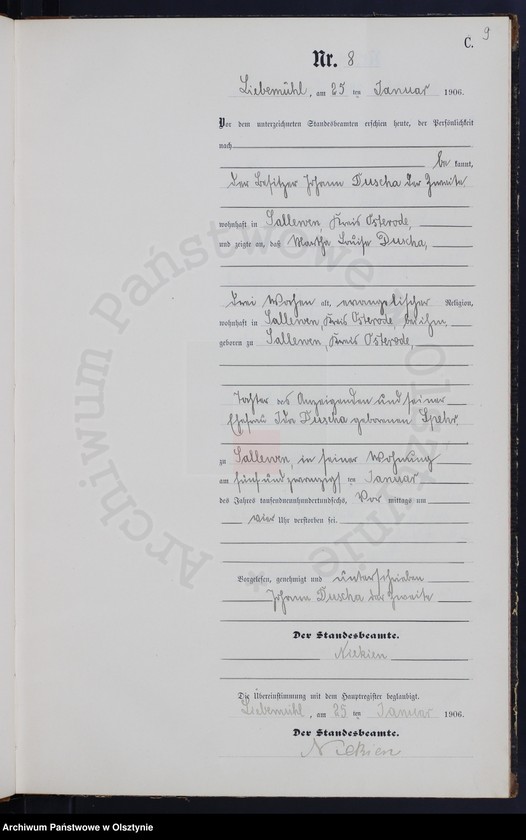 9
C.
Nr. 8
Liebemühl, am 25 ten Januar 1906.
Vor dem unterzeichneten Standesbeamten erschien heute, der Persönlichkeit
nach
be kannt,
der Besitzer Johann Duscha der Zweite
wohnhaft in Sallewen, Kreis Osterode,
und zeigte an, daß Martha Louise Duscha,
drei Wochen alt, evangelischer Religion,
wohnhaft in Sallewen, Kreis Osterode bei ihm,
geboren zu Sallewen, Kreis Osterode,
Tochter des Anzeigenden und seiner
Ehefrau Ida Duscha geborenen Spehr
zu Sallewen, in seiner Wohnung
am fünf und zwanzigsten Januar
des Jahres tausendneunhundertundsechs, Vor mittags um
vier Uhr verstorben sei.
Vorgelesen, genehmigt und unterschrieben
Johann Duscha der Zweite
Der Standesbeamte.
Niekien
Die Übereinstimmung mit dem Hauptregister beglaubigt.
Liebemühl, am 25 ten Januar 1906.
Der Standesbeamte.
Niekien
Archiwum Państwowe w Olsztynie
Archiwum Państwowe w Olsztynie